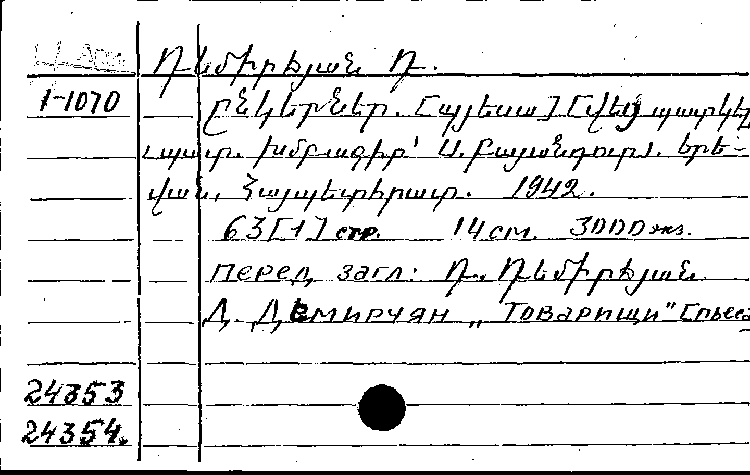 Դեմիրճյան Դ.
1-1070
Ընկերներ. [պյեսա] [վեց պատկեր
պատ. խմբագիր՝ Ս. Երե-
վան, Հայպետհրատ. 1942.
63 [1] стр. 14 см. 3000 экз.
перед загл: Դ. Դեմիրճյան
Д. Демирчян „Товарищи" [пьеса
24353
24354.